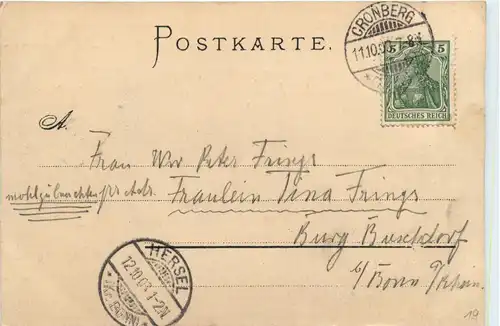 POSTKARTE.
CRONBERG
11.10.03. 7-8
5 5
DEUTSCHES REICH
A.
Frau Wwe Peter Frings
Fräulein Tina Frings
Burg Buschdorf
b/ Bonn a/Rhein.
HERSEL
12.10.03. 1-2N.
19